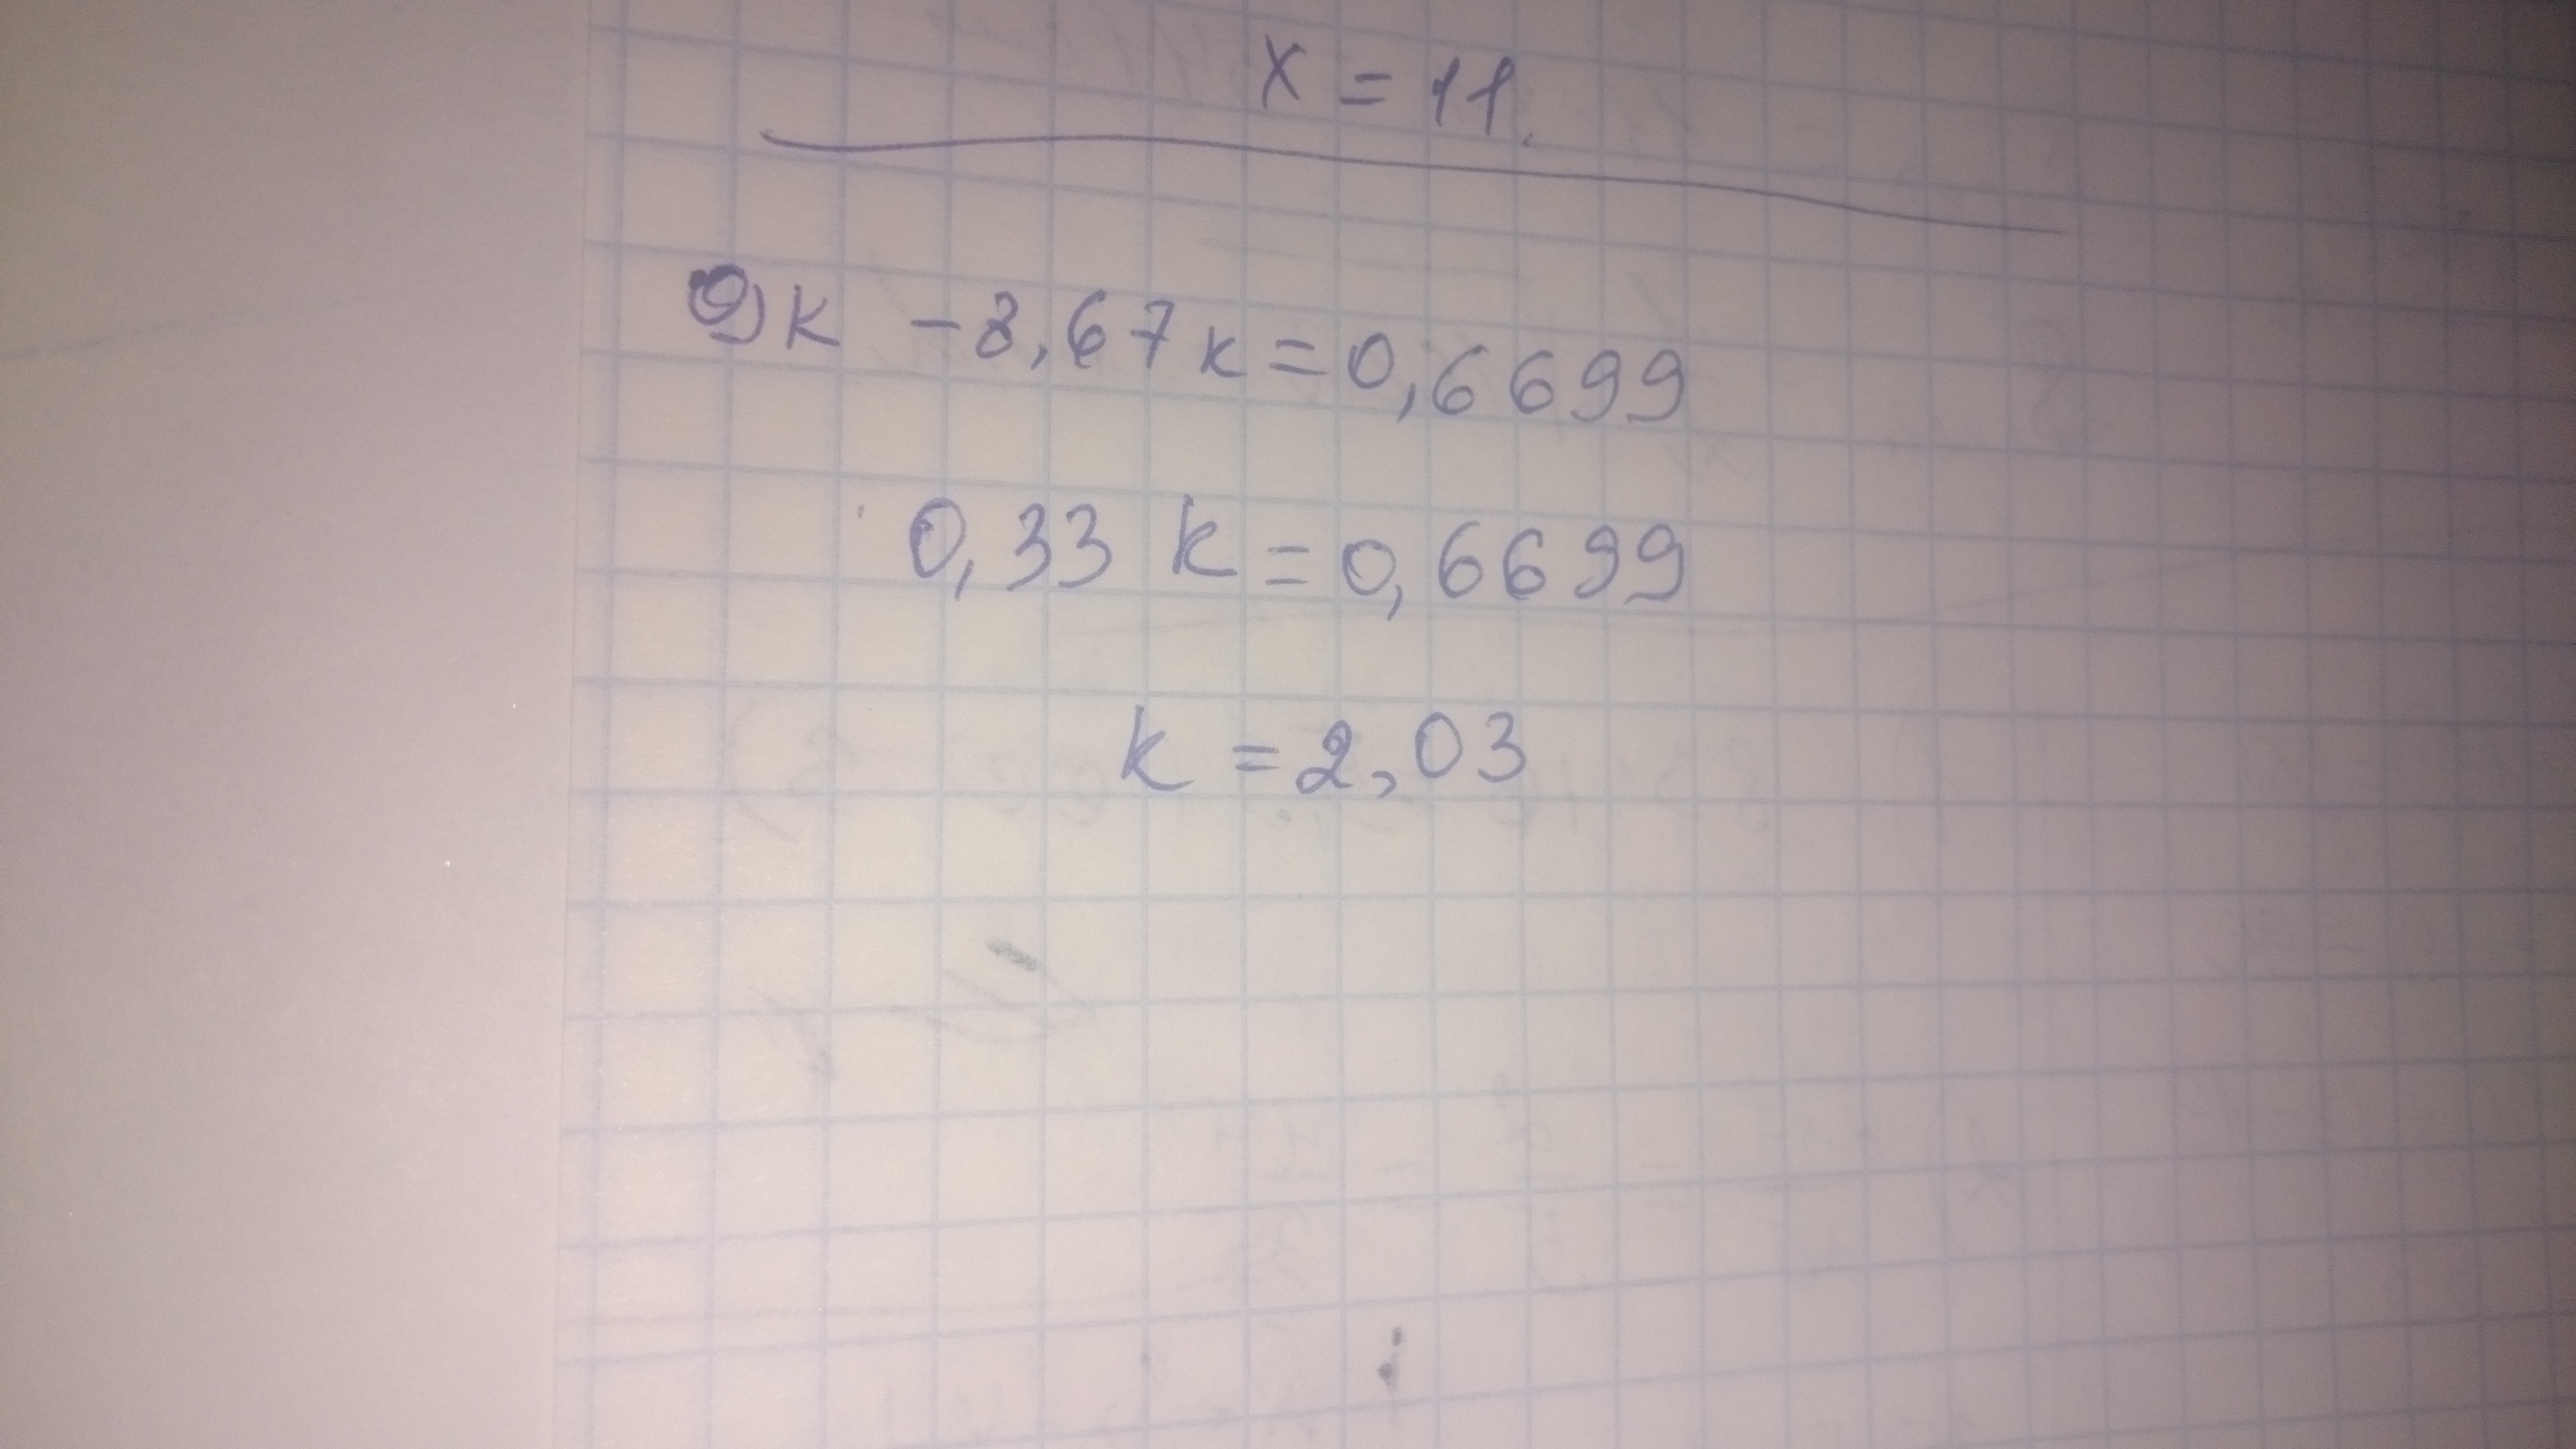 x = 11.
9k - 8,67k = 0,6699
0,33 k = 0,6699
k = 2,03